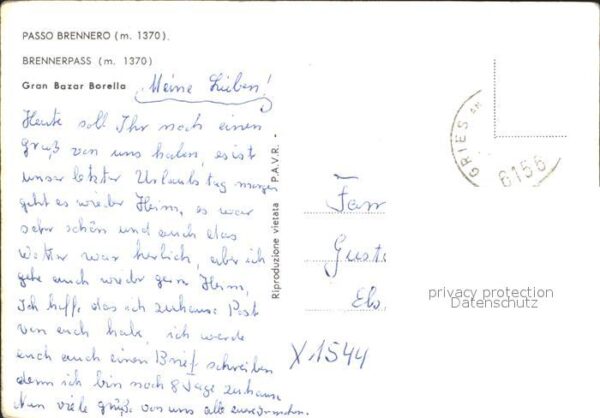 PASSO BRENNERO (m. 1370).
BRENNERPASS (m. 1370)
Gran Bazar Borella
Meine Lieben!
Heute sollt Ihr noch einen
gruß von uns haben, es ist
unser letzter Urlaubstag morgen
geht es wieder Heim, es war
sehr schön und auch das
Wetter war herlich, aber ich
gehe auch wieder gern Heim,
Ich hoffe, das ich zuhause Post
von euch habe, ich werde
euch auch einen Brief schreiben
denn ich bin noch 8 Tage zuhause
Nun viele grüße von uns alle
Riproduzione vietata P.A.V.R.
GRIES AM
6156
Fam
Gust
privacy protection
Datenschutz
X.1544